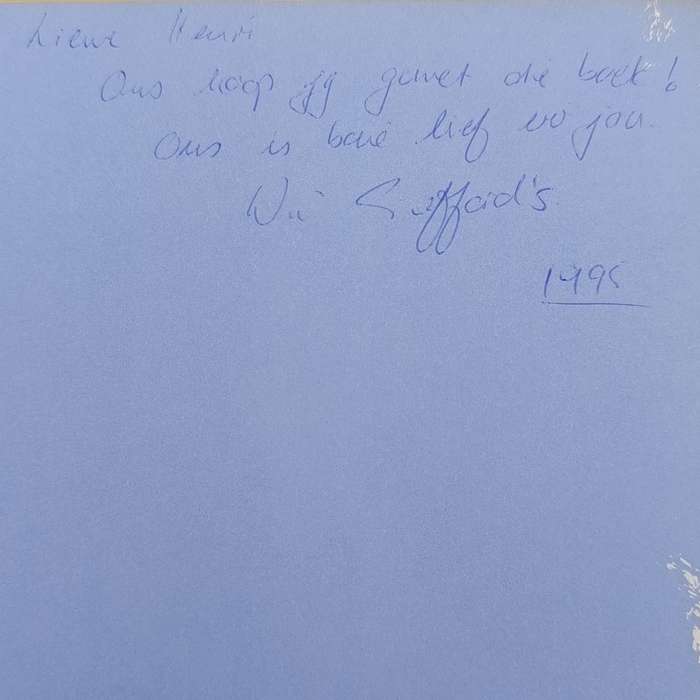 Liewe Henri
Ons hoop jy geniet die boek!
Ons is baie lief vir jou.
1995